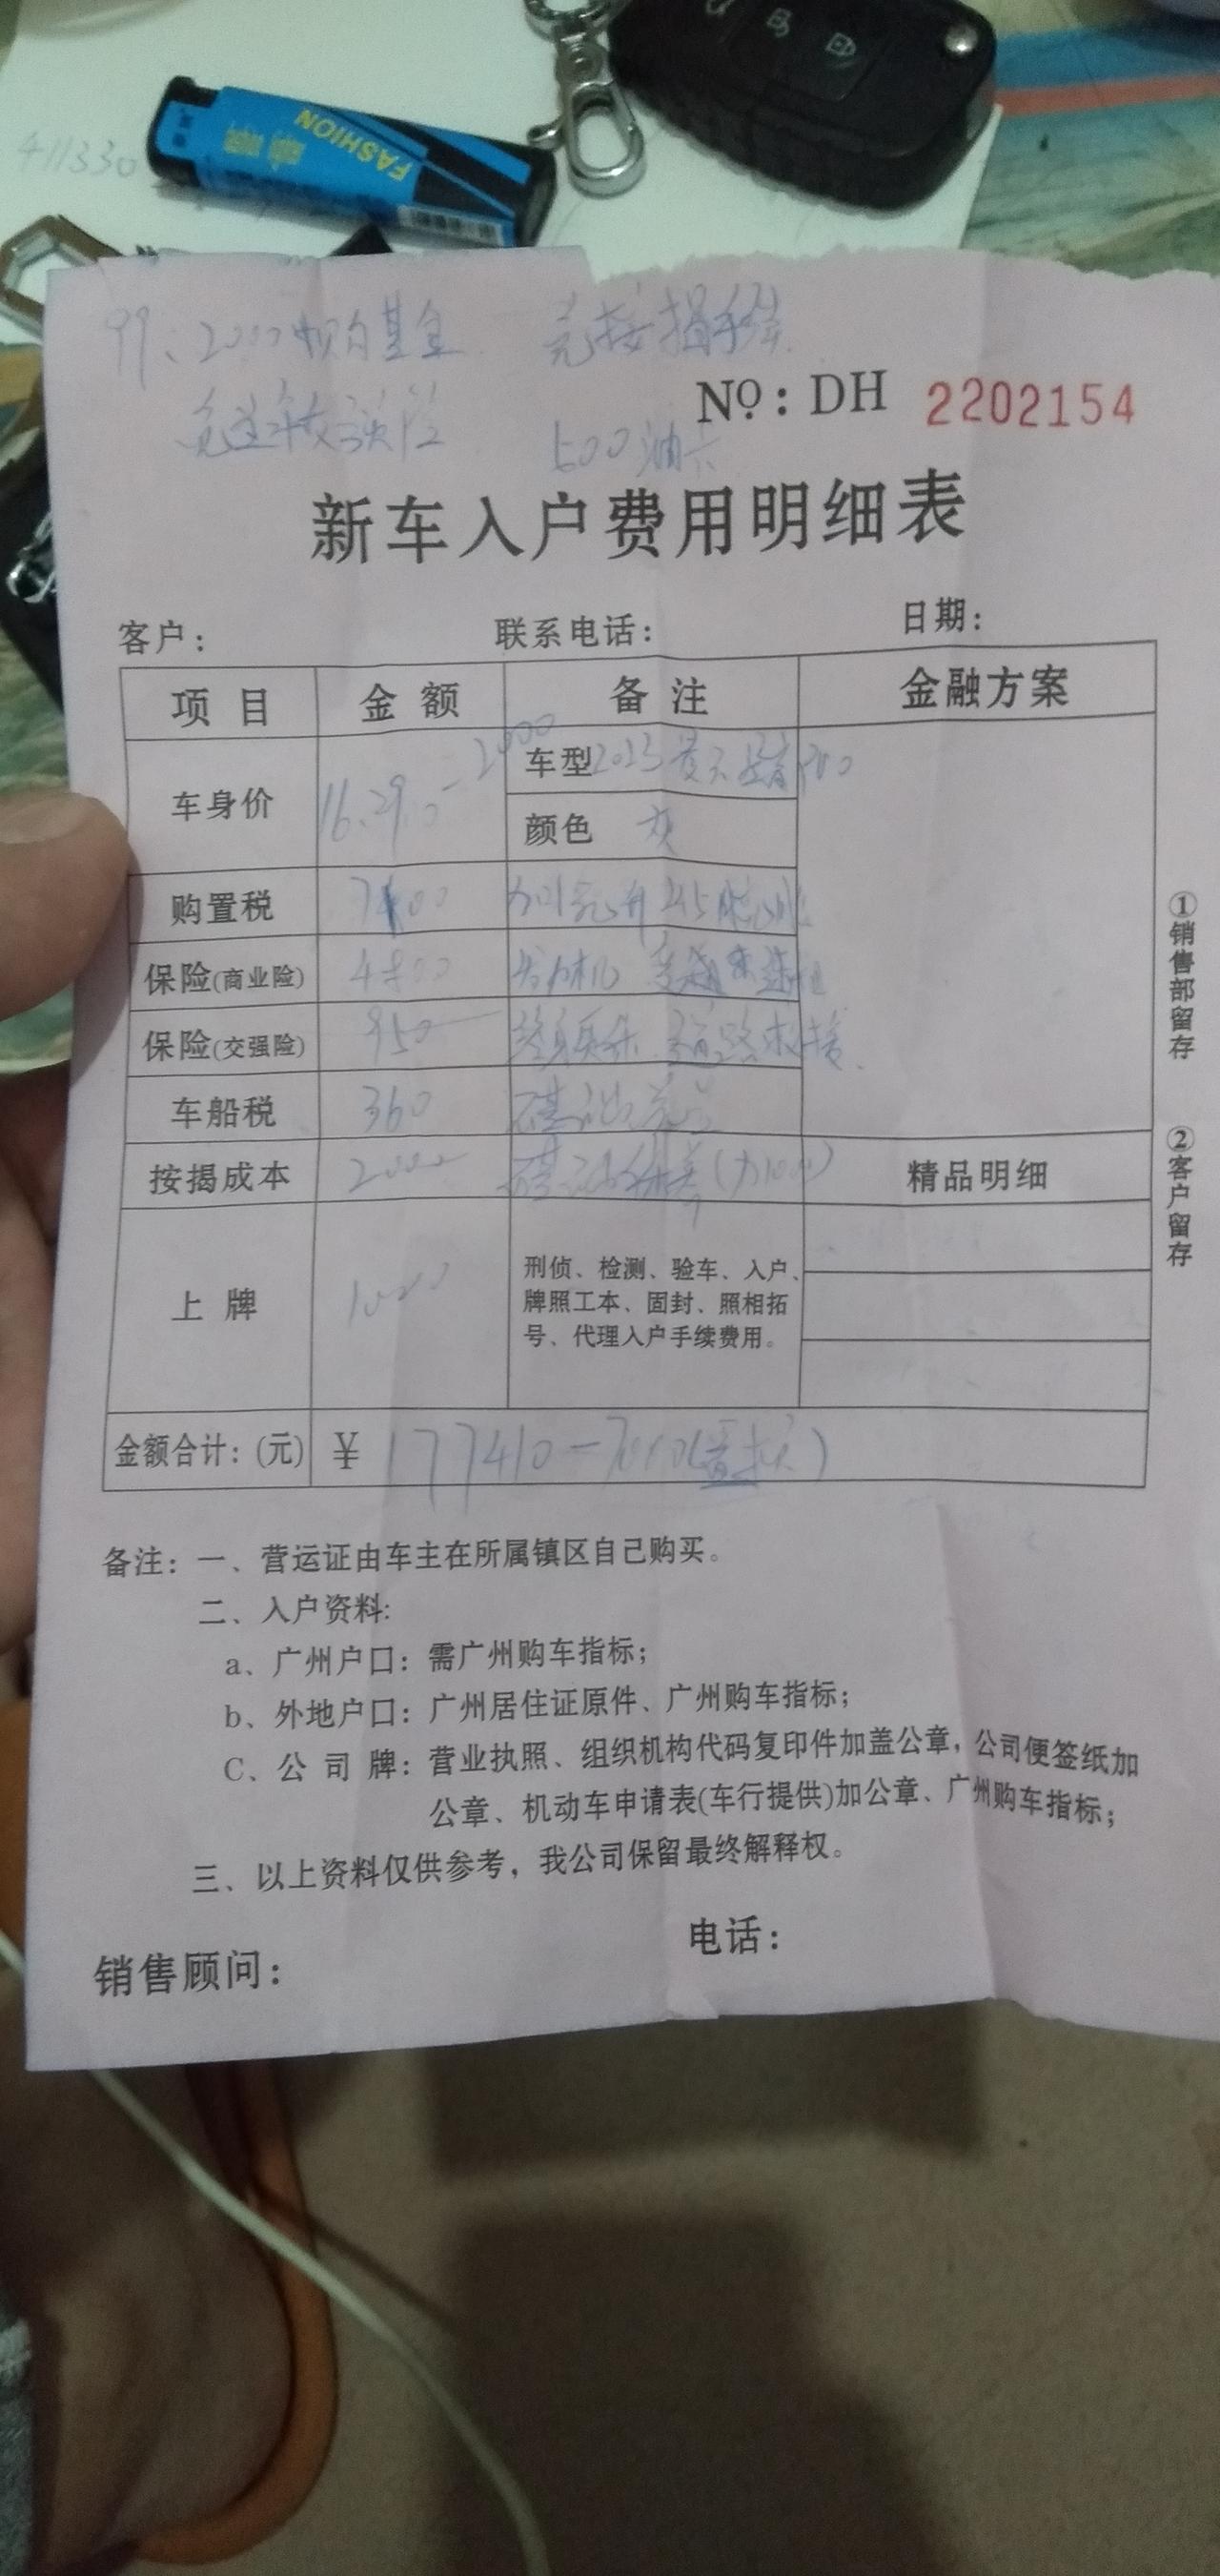 411330
FASHION
99、2000 购基金 免按揭手续
500油卡
Nº: DH 2202154
新车入户费用明细表
客户: 联系电话: 日期:
项目 金额 备注 金融方案
车身价 16.29 - 2000 车型 2023
颜色 灰
购置税
保险(商业险) 4800 发动机
保险(交强险) 950 终身 道路救援
车船税 360 基础
按揭成本 2000 基础保养 精品明细
上牌 1000 刑侦、检测、验车、入户、
牌照工本、固封、照相拓
号、代理入户手续费用。
金额合计:(元) ¥ 177410-7000(置换)
①销售部留存
②客户留存
备注: 一、营运证由车主在所属镇区自己购买。
二、入户资料:
a、广州户口: 需广州购车指标;
b、外地户口: 广州居住证原件、广州购车指标;
C、公司牌: 营业执照、组织机构代码复印件加盖公章, 公司便签纸加
公章、机动车申请表(车行提供)加公章、广州购车指标;
三、以上资料仅供参考, 我公司保留最终解释权。
销售顾问: 电话: